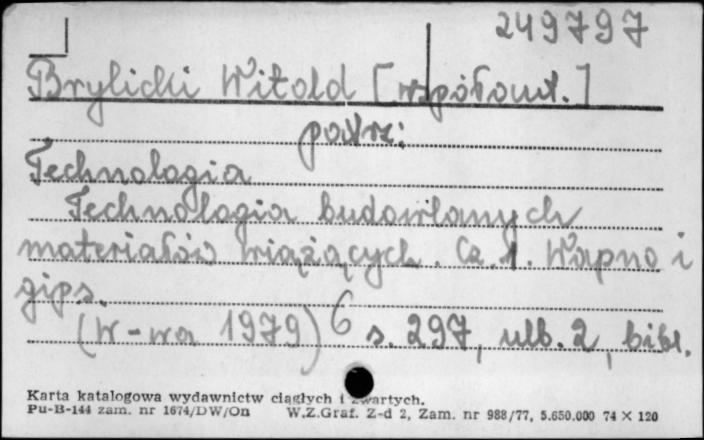 249797
Brylicki Witold [współaut.]
patrz:
Technologia
Technologia budowlanych
materiałów wiążących. Cz. 1. Wapno i
gips.
(W-wa 1979) 6 s. 297, nlb. 2, bibl.
Karta katalogowa wydawnictw ciągłych i zwartych.
Pu-B-144 zam. nr 1674/DW/On W.Z.Graf. Z-d 2, Zam. nr 988/77, 5.650.000 74 × 120